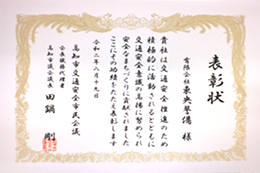 表彰状
有限会社東央整備 様
貴社は交通安全推進のため
積極的に活動されるとともに
交通安全意識の高揚に努められ
安全なまちづくりに貢献されました
ここにその功績をたたえ表彰します
令和六年六月十九日
高知市交通安全市民会議
会長職務代理者
高知市議会議長 田鍋 剛